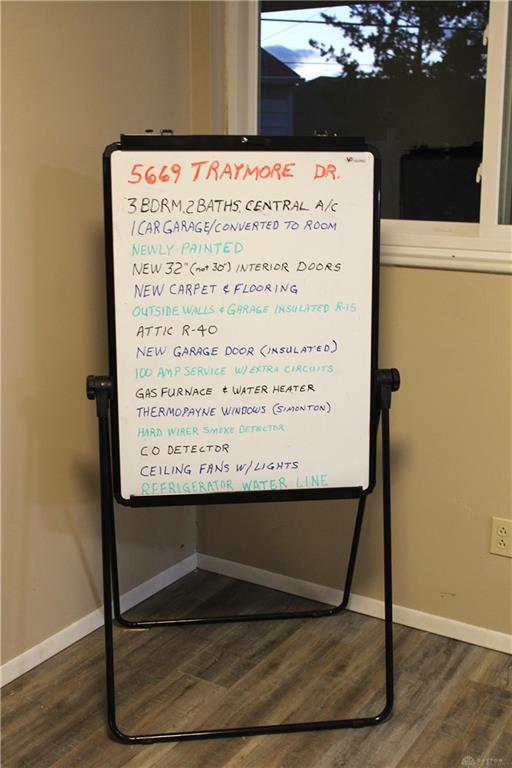 5669 TRAYMORE DR.
3 BDRM, 2 BATHS, CENTRAL A/C
1 CAR GARAGE/CONVERTED TO ROOM
NEWLY PAINTED
NEW 32" (not 30") INTERIOR DOORS
NEW CARPET & FLOORING
OUTSIDE WALLS & GARAGE INSULATED R-15
ATTIC R-40
NEW GARAGE DOOR (INSULATED)
100 AMP SERVICE W/EXTRA CIRCUITS
GAS FURNACE & WATER HEATER
THERMOPAYNE WINDOWS (SIMONTON)
HARD WIRER SMOKE DETECTOR
CO DETECTOR
CEILING FANS W/LIGHTS
REFRIGERATOR WATER LINE